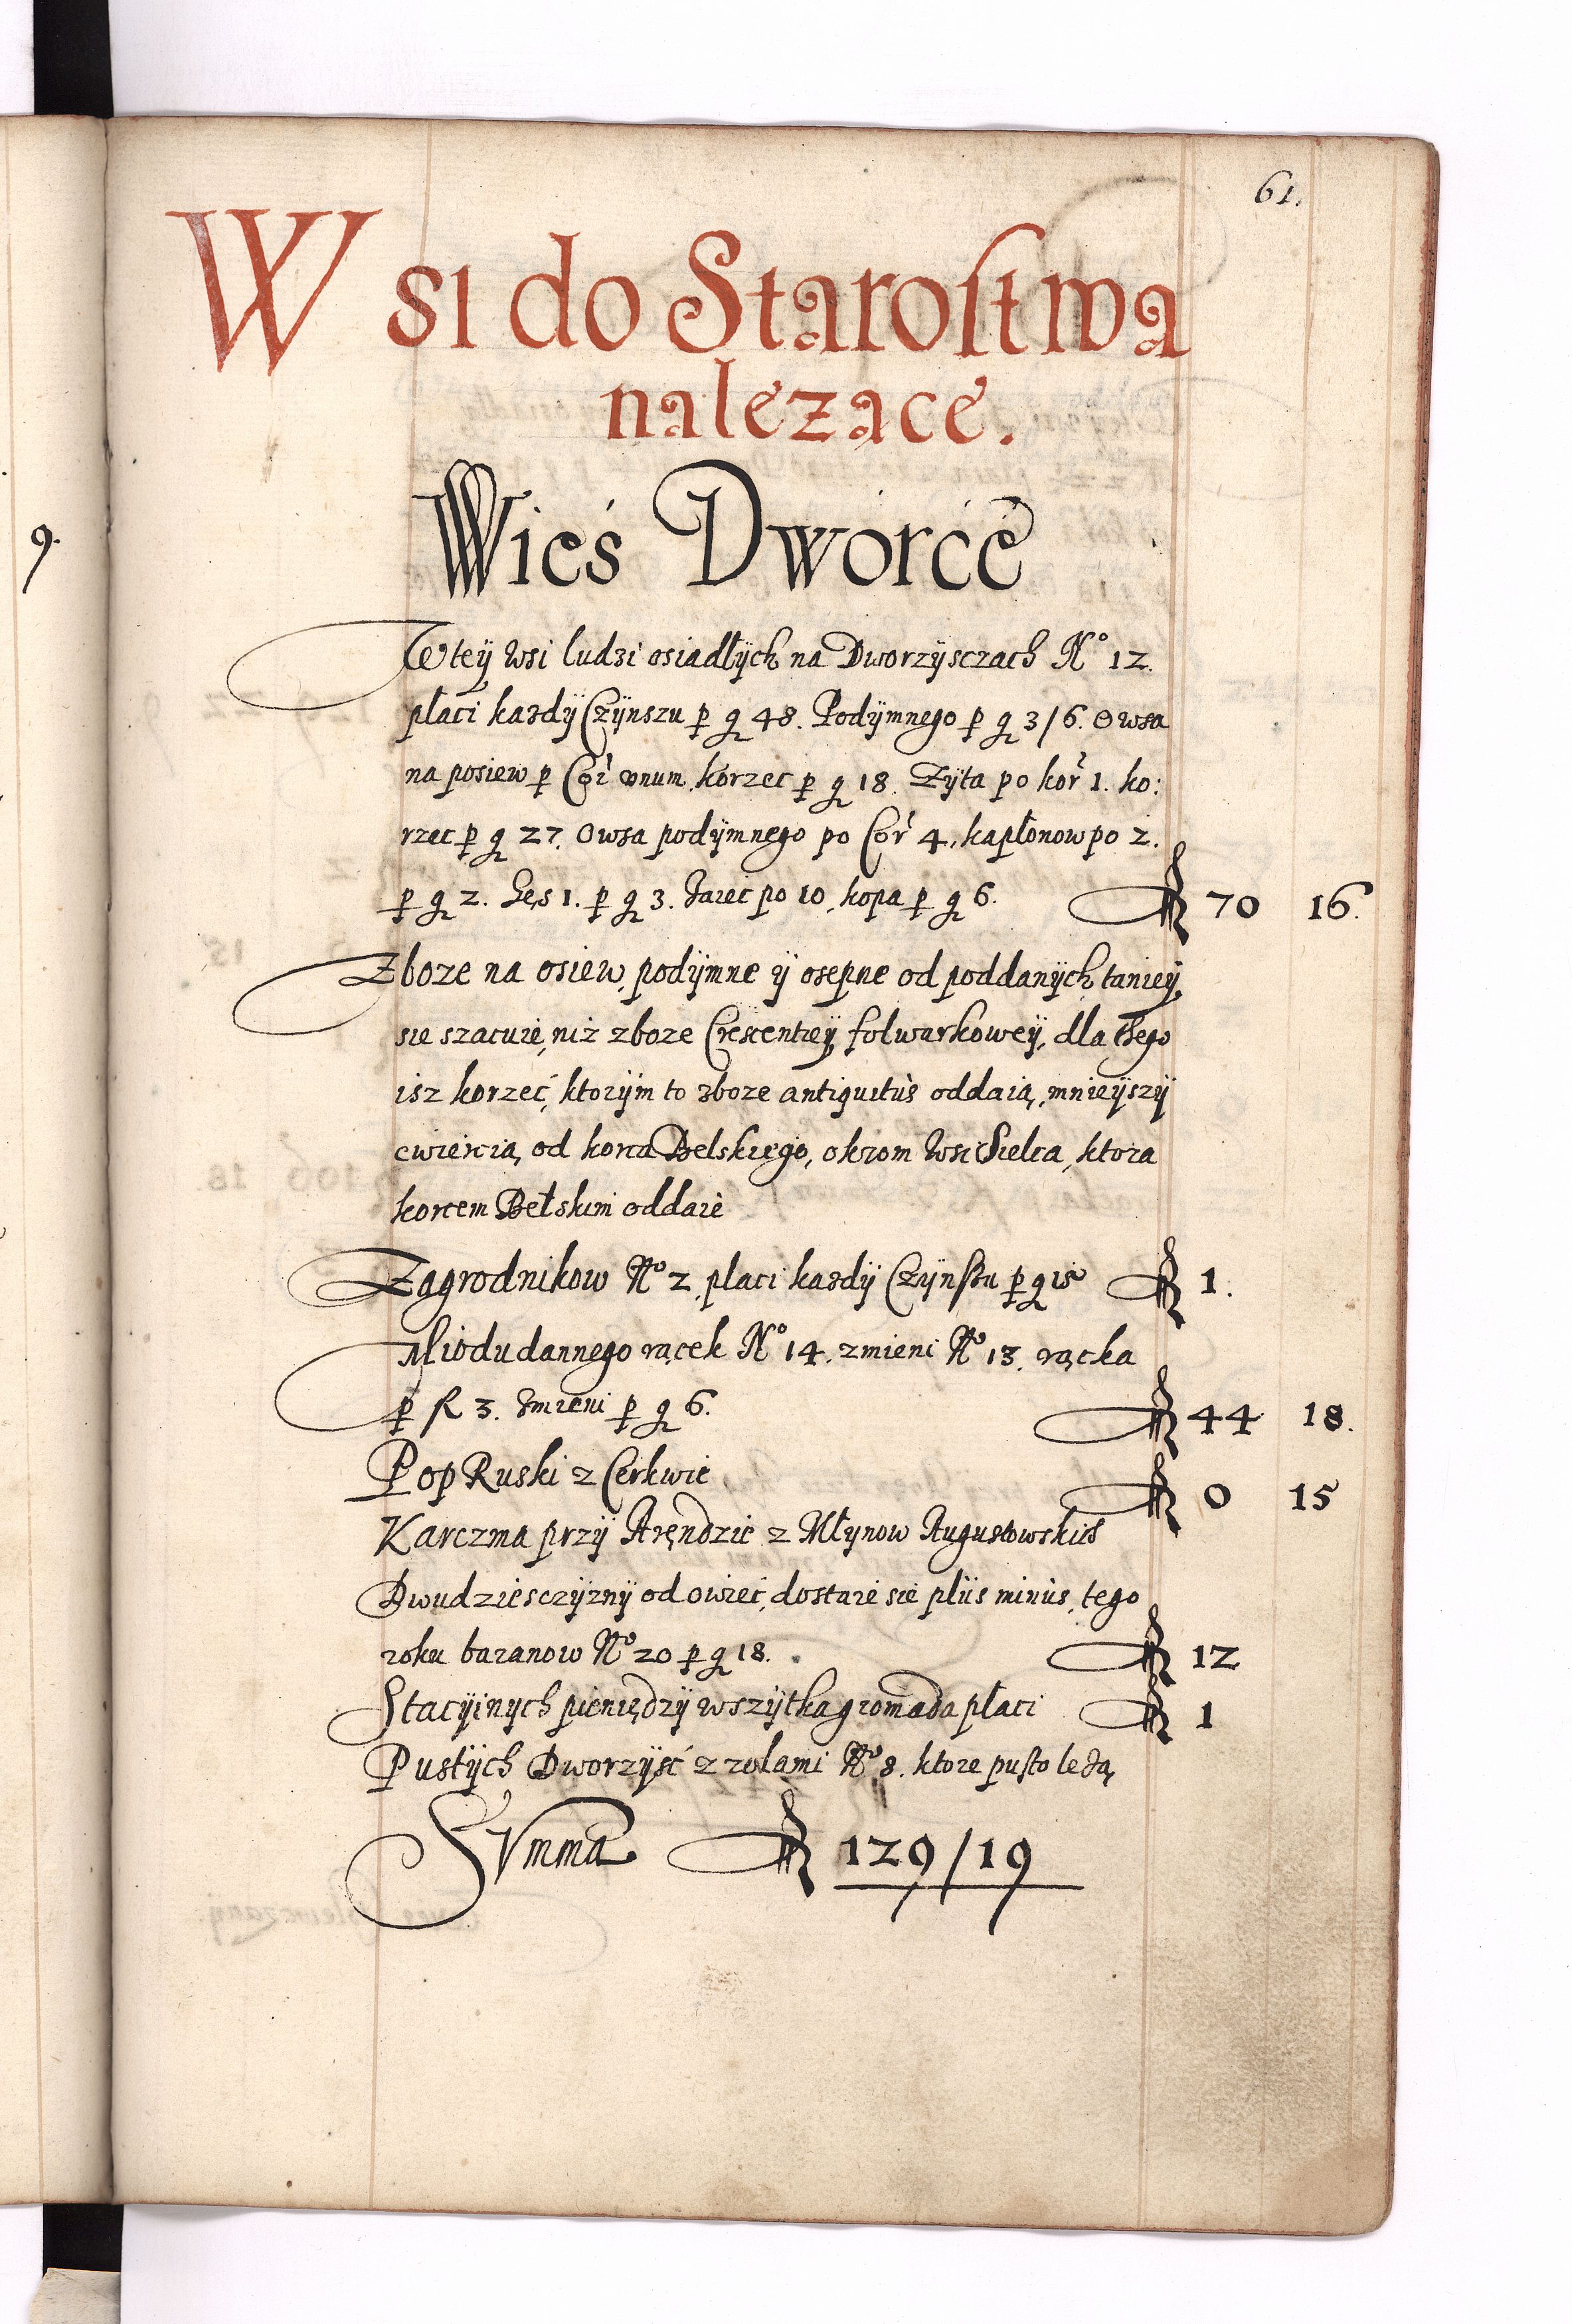 61.
Wsi do Staroſtwa
nalezące.
Wieś Dworce
W teÿ wsi ludzi osiadłÿch na Dworzÿsczach No 12.
płaci kazdÿ Czÿnszu p g 48. Podÿmnego p g 3/6. Owsa
na posiew p Cor unum, korzec p g 18. Zÿta po kor 1. ko:
rzec p g 27. Owsa podÿmnego po Cor 4, kapłonow po 2.
p g 2. Gęs 1. p g 3. Jaiec po 10, kopa p g 6. 70 16.
Zboze na osiew, podÿmne ÿ osepne od poddanÿch, tanieÿ
sie szacuie, niz zboze Crescentieÿ folwarkoweÿ, dla tego
isz korzec, ktorÿm to zboze antiquitùs oddaią, mnieÿszÿ
cwiercią od korca Belskiego, okrom Wsi Sielca, ktora
korcem Bełskim oddaie
Zagrodnikow No 2, płaci kazdÿ Czÿnſzu p g 15 1.
Miodu dannego rącek No 14. zmieni No 13. rącka
p fl 3. Zmieni p g 6. 44 18.
Pop Ruski z Cerkwie 0 15
Karczma przÿ Arędzie z Młynow Augustowskich
Dwudziesczÿznÿ od owiec, dostaie sie plùs minùs, tego
roku baranow No 20 p g 18. 12
Stacÿinÿch pieniędzÿ wszÿtka gromada płaci 1
Pustÿch Dworzÿsć z rolami No 8. ktore puſto leżą,
Summa 129/19
9.